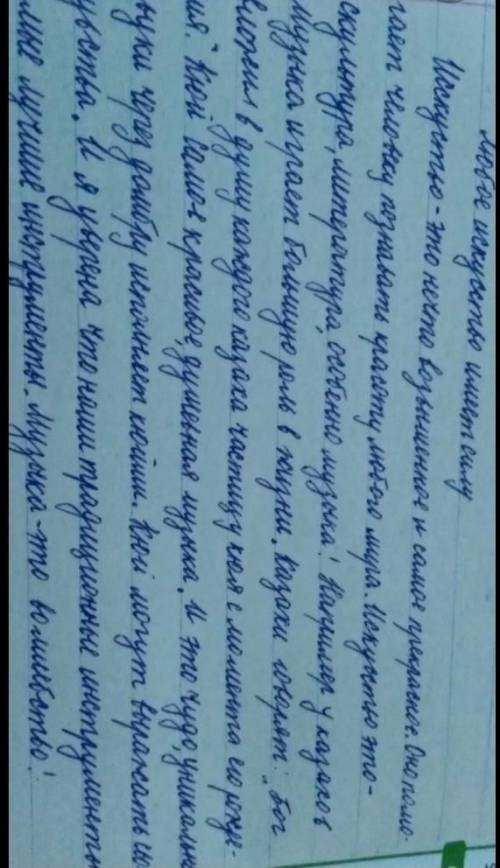 Любое искусство имеет силу
Искуство - это нечто возвышенное и самое прекрасное. Оно помо-
гает человеку познавать красоту любого мира. Искуство это -
скульптура, литература, особенно музыка! Например у казахов
музыка играет большую роль в жизни. Казахи говорят: „Бог
вложил в душу каждого казаха частицу кюя с момента его рожде-
ия." Кюй самое красивое, душевная музыка. И это чудо, уникальн
вуки через домбру исполняет кюйши. Кюй могут выражать
увства. И я уверена что наши традиционные инструменты
мые лучшие инструменты. Музыка - это волшебство!